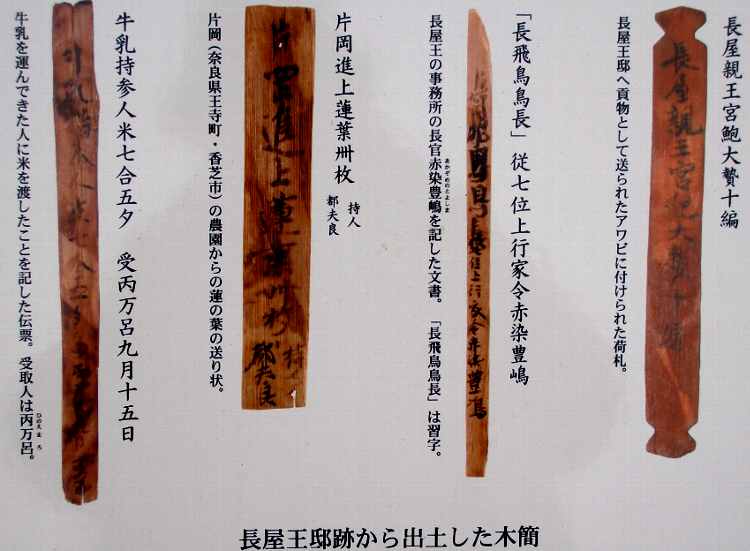 長屋親王宮鮑大贄十編
長屋王邸へ貢物として送られたアワビに付けられた荷札。
長屋親王宮鮑大贄十編
「長飛鳥鳥長」従七位上行家令赤染豊嶋
長屋王の事務所の長官赤染豊嶋を記した文書。「長飛鳥鳥長」は習字。
あかぞめのとよしま
片岡進上蓮葉卅枚
持人
都夫良
片岡（奈良県王寺町・香芝市）の農園からの蓮の葉の送り状。
片岡進上蓮葉卅枚
持人
都夫良
牛乳持参人米七合五夕　受丙万呂九月十五日
牛乳を運んできた人に米を渡したことを記した伝票。受取人は丙万呂。
ひのえまろ
長屋王邸跡から出土した木簡